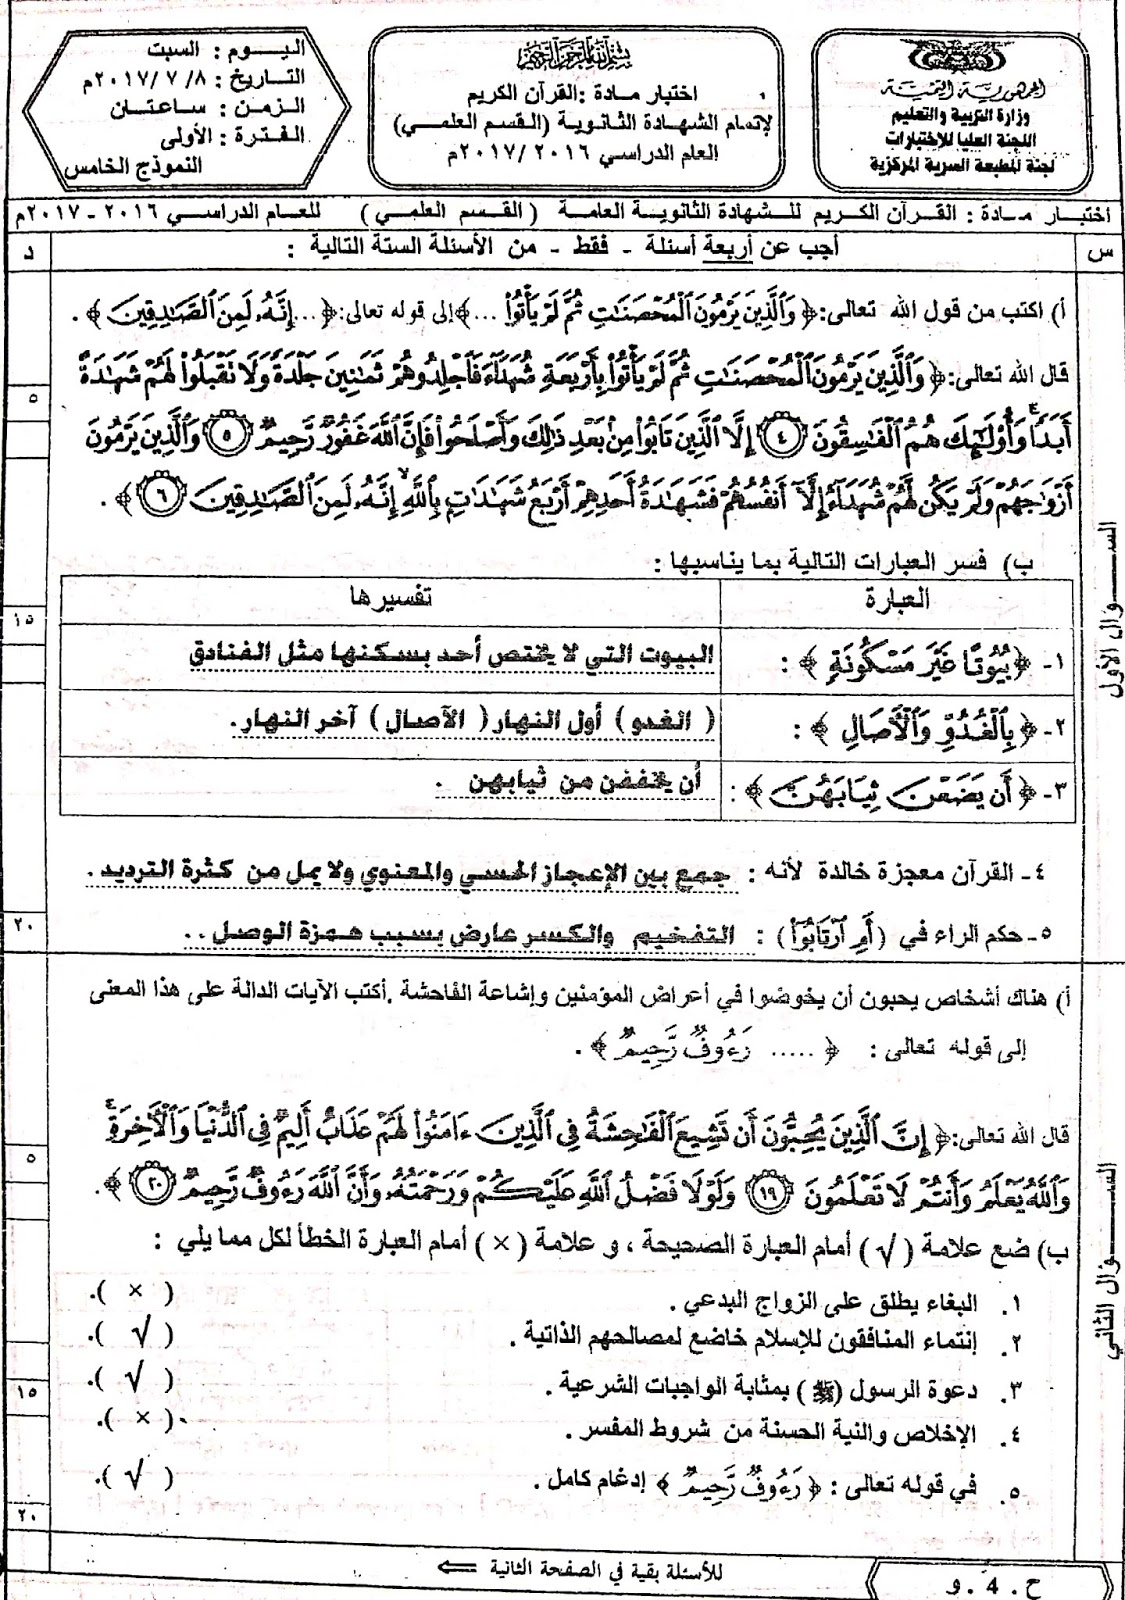 الجمهورية اليمنية
وزارة التربية والتعليم
اللجنة العليا للاختبارات
لجنة المطبعة السرية المركزية
بسم الله الرحمن الرحيم
اختبار مادة :القرآن الكريم
لإتمام الشهادة الثانوية (القسم العلمي)
العام الدراسي ٢٠١٦ /٢٠١٧م
اليوم : السبت
التاريخ : ٨/ ٧ /٢٠١٧م
الزمن : ساعتان
الفترة : الأولى
النموذج الخامس
اختبار مادة : القرآن الكريم للشهادة الثانوية العامة ( القسم العلمي ) للعام الدراسي ٢٠١٦ - ٢٠١٧م
س
أجب عن أربعة أسئلة - فقط - من الأسئلة الستة التالية :
د
السؤال الأول
أ) اكتب من قول الله تعالى:﴿ وَالَّذِينَ يَرْمُونَ الْمُحْصَنَاتِ ثُمَّ لَمْ يَأْتُوا ...﴾إلى قوله تعالى:﴿ ...إِنَّهُ لَمِنَ الصَّادِقِينَ ﴾ .
قال الله تعالى:﴿ وَالَّذِينَ يَرْمُونَ الْمُحْصَنَاتِ ثُمَّ لَمْ يَأْتُوا بِأَرْبَعَةِ شُهَدَاءَ فَاجْلِدُوهُمْ ثَمَانِينَ جَلْدَةً وَلَا تَقْبَلُوا لَهُمْ شَهَادَةً
٥
أَبَدًا وَأُولَٰئِكَ هُمُ الْفَاسِقُونَ ٤ إِلَّا الَّذِينَ تَابُوا مِنْ بَعْدِ ذَٰلِكَ وَأَصْلَحُوا فَإِنَّ اللَّهَ غَفُورٌ رَّحِيمٌ ٥ وَالَّذِينَ يَرْمُونَ
أَزْوَاجَهُمْ وَلَمْ يَكُن لَّهُمْ شُهَدَاءُ إِلَّا أَنفُسُهُمْ فَشَهَادَةُ أَحَدِهِمْ أَرْبَعُ شَهَادَاتٍ بِاللَّهِ إِنَّهُ لَمِنَ الصَّادِقِينَ ٦ ﴾ .
ب) فسر العبارات التالية بما يناسبها :
العبارة تفسيرها
١٥
١- ﴿ بُيُوتًا غَيْرَ مَسْكُونَةٍ ﴾ : البيوت التي لا يختص أحد بسكنها مثل الفنادق
٢- ﴿ بِالْغُدُوِّ وَالْآصَالِ ﴾ : ( الغدو ) أول النهار ( الآصال ) آخر النهار.
٣- ﴿ أَن يَضَعْنَ ثِيَابَهُنَّ ﴾ : أن يخففن من ثيابهن .
٤- القرآن معجزة خالدة لأنه : جمع بين الإعجاز الحسي والمعنوي ولا يمل من كثرة الترديد .
٥- حكم الراء في (أَمِ ارْتَابُوا) : التفخيم والكسر عارض بسبب همزة الوصل ..
٢٠
السؤال الثاني
أ) هناك أشخاص يحبون أن يخوضوا في أعراض المؤمنين وإشاعة الفاحشة .أكتب الآيات الدالة على هذا المعنى
إلى قوله تعالى : ﴿ ..... رَءُوفٌ رَّحِيمٌ ﴾ .
قال الله تعالى:﴿ إِنَّ الَّذِينَ يُحِبُّونَ أَن تَشِيعَ الْفَاحِشَةُ فِي الَّذِينَ ءَامَنُوا لَهُمْ عَذَابٌ أَلِيمٌ فِي الدُّنْيَا وَالْآخِرَةِ
٥
وَاللَّهُ يَعْلَمُ وَأَنتُمْ لَا تَعْلَمُونَ ١٩ وَلَوْلَا فَضْلُ اللَّهِ عَلَيْكُمْ وَرَحْمَتُهُ وَأَنَّ اللَّهَ رَءُوفٌ رَّحِيمٌ ٢٠ ﴾ .
ب) ضع علامة ( √ ) أمام العبارة الصحيحة ، و علامة ( × ) أمام العبارة الخطأ لكل مما يلي :
١. البغاء يطلق على الزواج البدعي . ( × ).
٢. إنتماء المنافقون للإسلام خاضع لمصالحهم الذاتية . ( √ ).
٣. دعوة الرسول (ﷺ) بمثابة الواجبات الشرعية . ( √ ).
١٥
٤. الإخلاص والنية الحسنة من شروط المفسر . ( × ).
٥. في قوله تعالى : ﴿ رَءُوفٌ رَّحِيمٌ ﴾ إدغام كامل . ( √ ).
٢٠
للأسئلة بقية في الصفحة الثانية ⇐
ح . 4 . و